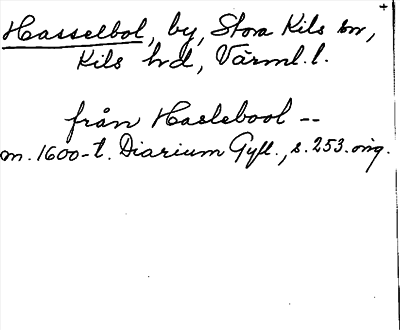 Hasselbol, by, Stora Kils sn,
Kils hd, Värml. l.
från Haslebool --
m. 1600-t. Diarium Gyll., s. 253. orig.